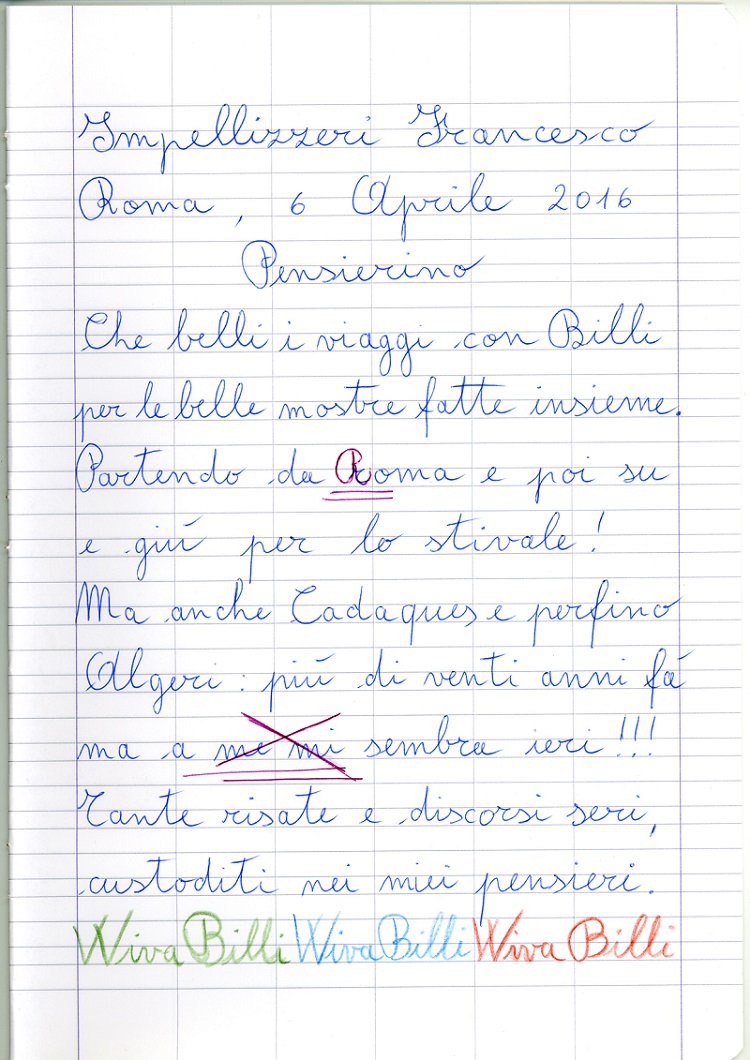 Impellizzeri Francesco
Roma, 6 Aprile 2016
Pensierino
Che belli i viaggi con Billi
per le belle mostre fatte insieme.
Partendo da Roma e poi su
e giù per lo stivale!
Ma anche Cadaques e perfino
Algeri: più di venti anni fà
ma a me mi sembra ieri!!!
Tante risate e discorsi seri,
custoditi nei miei pensieri.
Wiva Billi Wiva Billi Wiva Billi